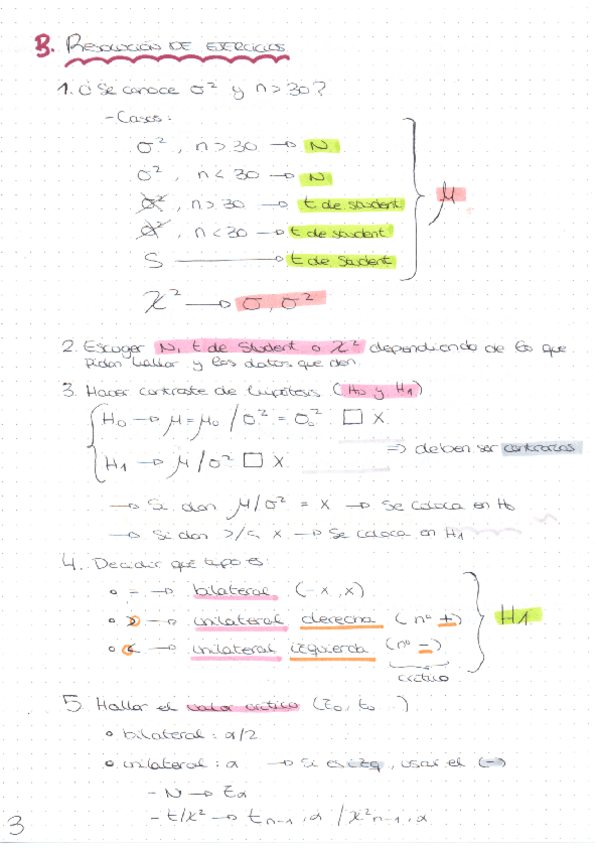 B. RESOLUCIÓN DE EJERCICIOS
1. ¿Se conoce σ² y n>30?
- Casos:
σ², n>30 → N
σ², n<30 → N
σ², n>30 → t de student
σ², n<30 → t de student
S → t de student
μ
χ² → σ, σ²
2. Escoger N, t de Student o χ² dependiendo de lo que
pidan hallar y los datos que den.
3. Hacer contraste de hipótesis (H0 y H1)
H0 → μ=μ0 / σ² = σ0² □ x
⇒ deben ser contrarias
H1 → μ/σ² □ x
→ Si dan μ/σ² = x → Se coloca en H0
→ Si dan >/<, x → Se coloca en H1
4. Decidir qué tipo es:
• = → bilateral (-x, x)
• > → unilateral derecha (nº +)
• < → unilateral izquierda (nº -)
H1
crítico
5. Hallar el valor crítico (z0, t0 )
• bilateral: α/2
• unilateral: α → Si es izq, usar el (-)
- N → zα
- t/χ² → t n-1, α / χ² n-1, α
3